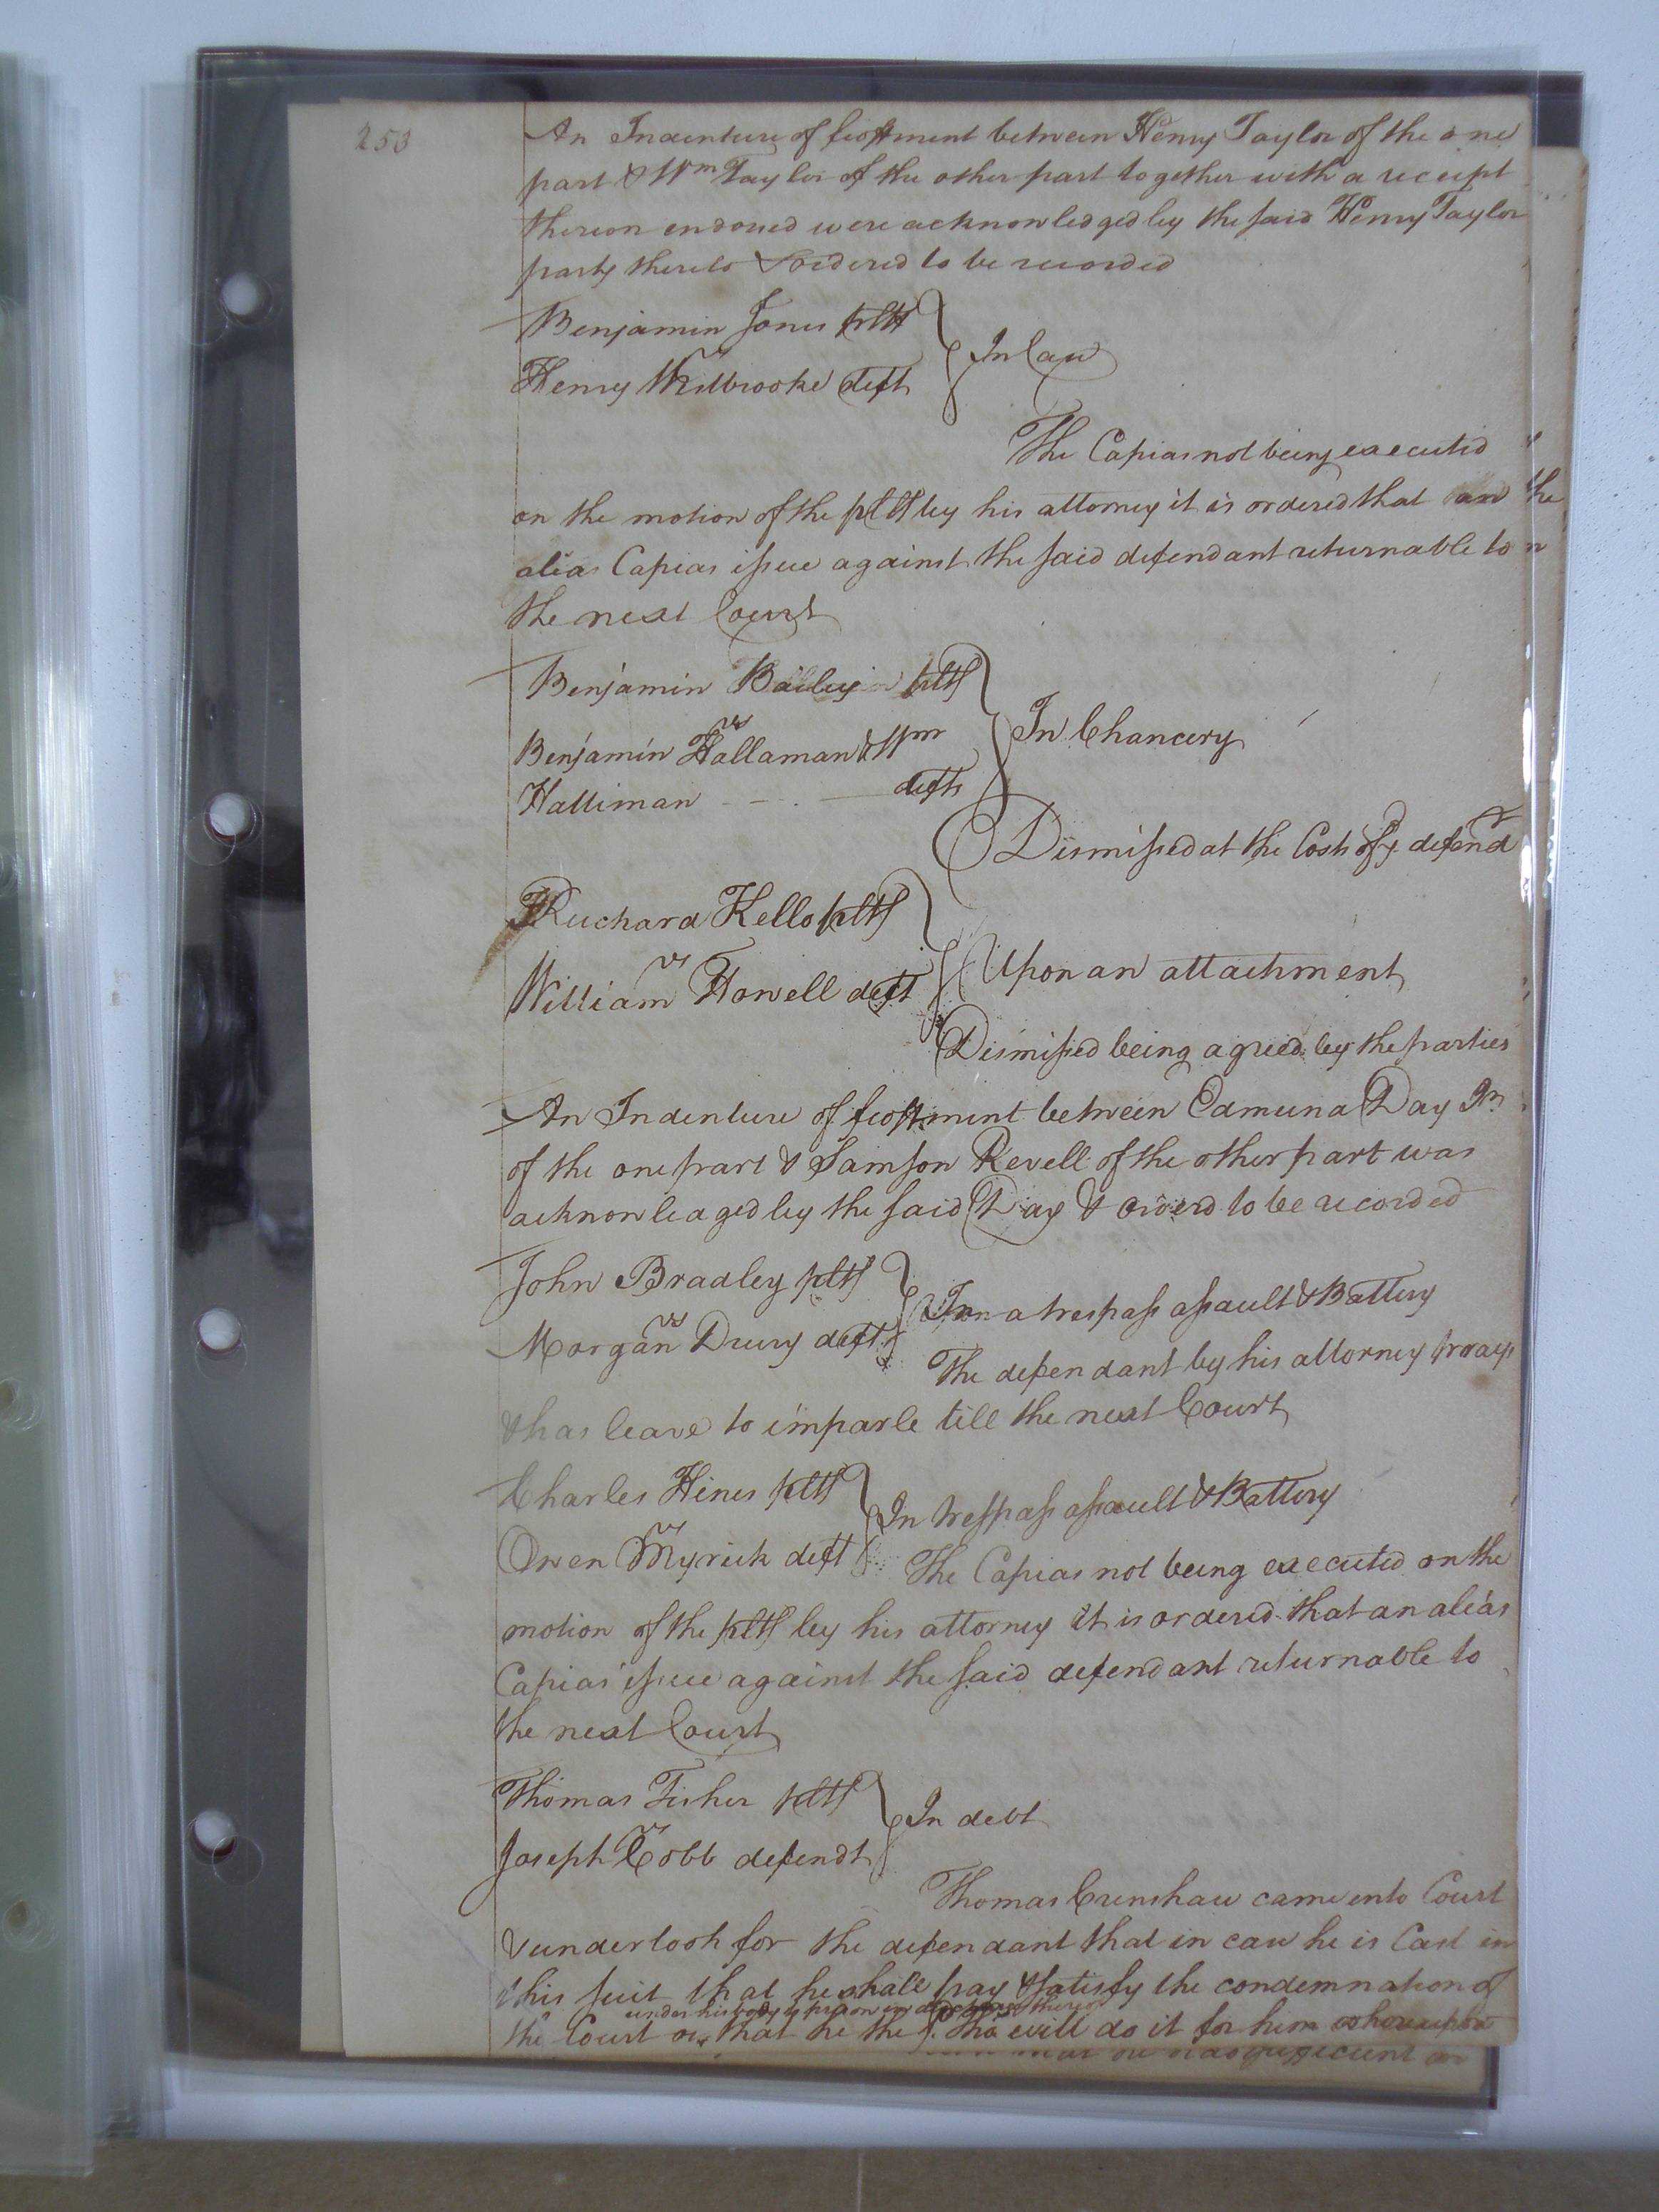 253
An Indenture of feoffment between Henry Taylor of the one
part & Wm Taylor of the other part together with a receipt
thereon endorsed were acknowledged by the said Henry Taylor
party thereto & ordered to be recorded
Benjamin Jones pltf
vs
Henry Westbrooke deft
In Case
The Capias not being executed
on the motion of the pltf by his attorney it is ordered that an
alias Capias issue against the said defendant returnable to
the next Court
Benjamin Bailey pltf
vs
Benjamin Hallaman & Wm
Halliman defts
In Chancery
Dismissed at the Costs of ye defend
Richard Kello pltf
vs
William Howell deft
Upon an attachment
Dismissed being agreed by the parties
An Indenture of feoffment between Edmund Day Jr
of the one part & Samson Revell of the other part was
acknowledged by the said Day & Orderd to be recorded
John Bradley pltf
vs
Morgan Drury deft
In a trespass assault & Battery
The defendant by his attorney prays
& has leave to imparle till the next Court
Charles Hines pltf
vs
Owen Myrick deft
In trespass assault & Battery
The Capias not being executed on the
motion of the pltf by his attorney it is ordered that an alias
Capias issue against the said defendant returnable to
the next Court
Thomas Fisher pltf
vs
Joseph Cobb defendt
In debt
Thomas Crenshaw came into Court
& undertook for the defendant that in case he is Cast in
this suit that he shall pay & satisfy the condemnation of
under his body to prison in discharge thereof
the Court or that he the sd Tho will do it for him whereupon